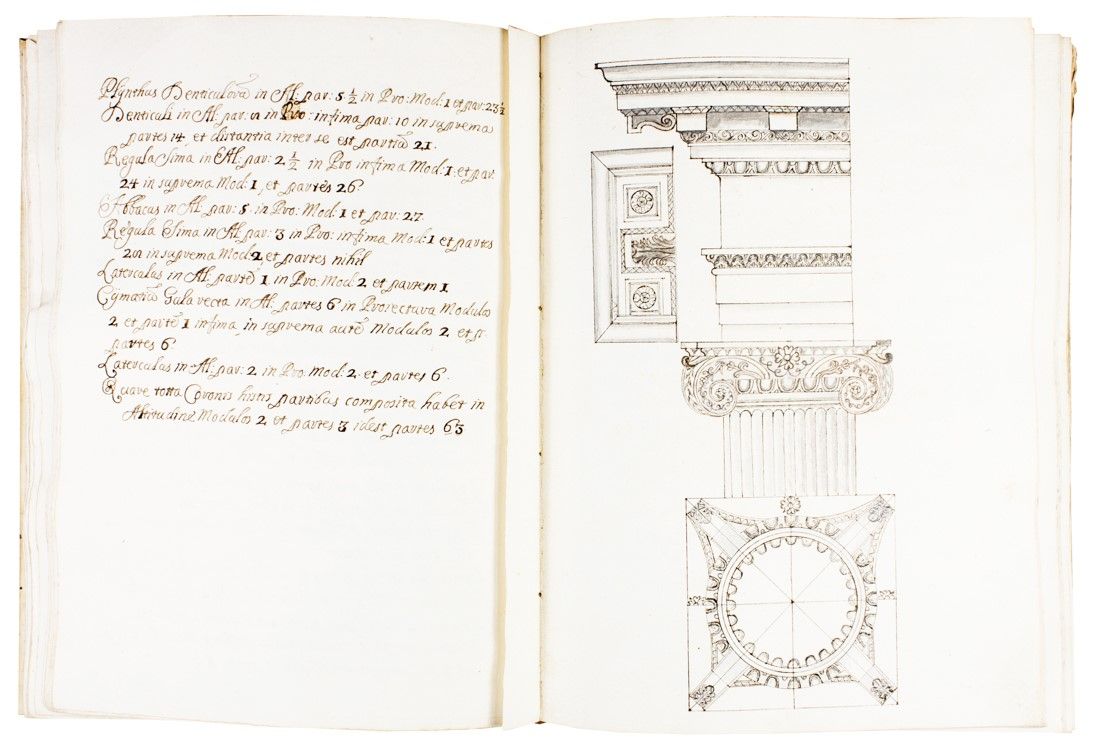 Plynthus Denticulorũ in Al: par: 5 ½ in Pro: Mod: 1 et par: 23 ½
Denticuli in Al: par: in Pro: infima par: 10 in supremas
partes 14, et distantia inter se est partiũ 21.
Regula Sima in Al: par: 2 ½ in Pro infima Mod: 1: et par:
24 in suprema Mod: 1, et partes 26
Abbacus in Al: par: 5. in Pro: Mod: 1 et par: 27.
Regula Sima in Al: par: 3 in Pro: infima Mod: 1 et partes
in suprema Mod: 2 et partes nihil
Laterculus in Al: partẽ 1. in Pro: Mod: 2 et partem 1
Cymatiũ Gula recta in Al: partes 6 in Proiectura Modulos
2 et partẽ 1 infima, in suprema autẽ Modulos 2 et
partes 6
Laterculus in Al: par: 2 in Pro: mod: 2. et partes 6.
Quare totta Coronis histis partibus composita habet in
Altitudine Modulos 2 et partes 3 idest partes 63